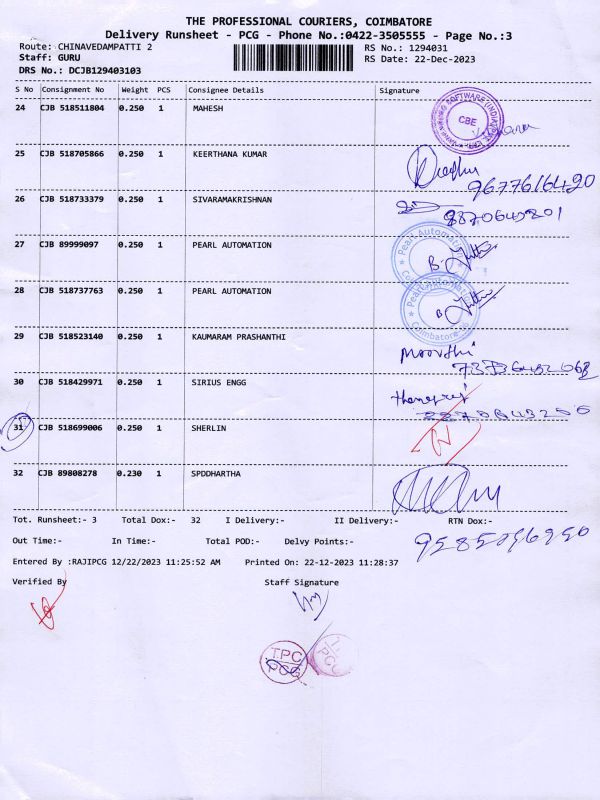 THE PROFESSIONAL COURIERS, COIMBATORE
Delivery Runsheet - PCG - Phone No.:0422-3505555 - Page No.:3
Route: CHINAVEDAMPATTI 2 RS No.: 1294031
Staff: GURU RS Date: 22-Dec-2023
DRS No.: DCJB129403103
S No Consignment No Weight PCS Consignee Details Signature
24 CJB 518511804 0.250 1 MAHESH
CBE
25 CJB 518705866 0.250 1 KEERTHANA KUMAR
9677616420
26 CJB 518733379 0.250 1 SIVARAMAKRISHNAN
27 CJB 89999097 0.250 1 PEARL AUTOMATION
Pearl Automation
28 CJB 518737763 0.250 1 PEARL AUTOMATION
Coimbatore
29 CJB 518523140 0.250 1 KAUMARAM PRASHANTHI
Moorthi
30 CJB 518429971 0.250 1 SIRIUS ENGG
31 CJB 518699006 0.250 1 SHERLIN
32 CJB 89808278 0.230 1 SPDDHARTHA
Tot. Runsheet:- 3 Total Dox:- 32 I Delivery:- II Delivery:- RTN Dox:-
Out Time:- In Time:- Total POD:- Delvy Points:-
Entered By :RAJIPCG 12/22/2023 11:25:52 AM Printed On: 22-12-2023 11:28:37
Verified By Staff Signature
TPC
PCG